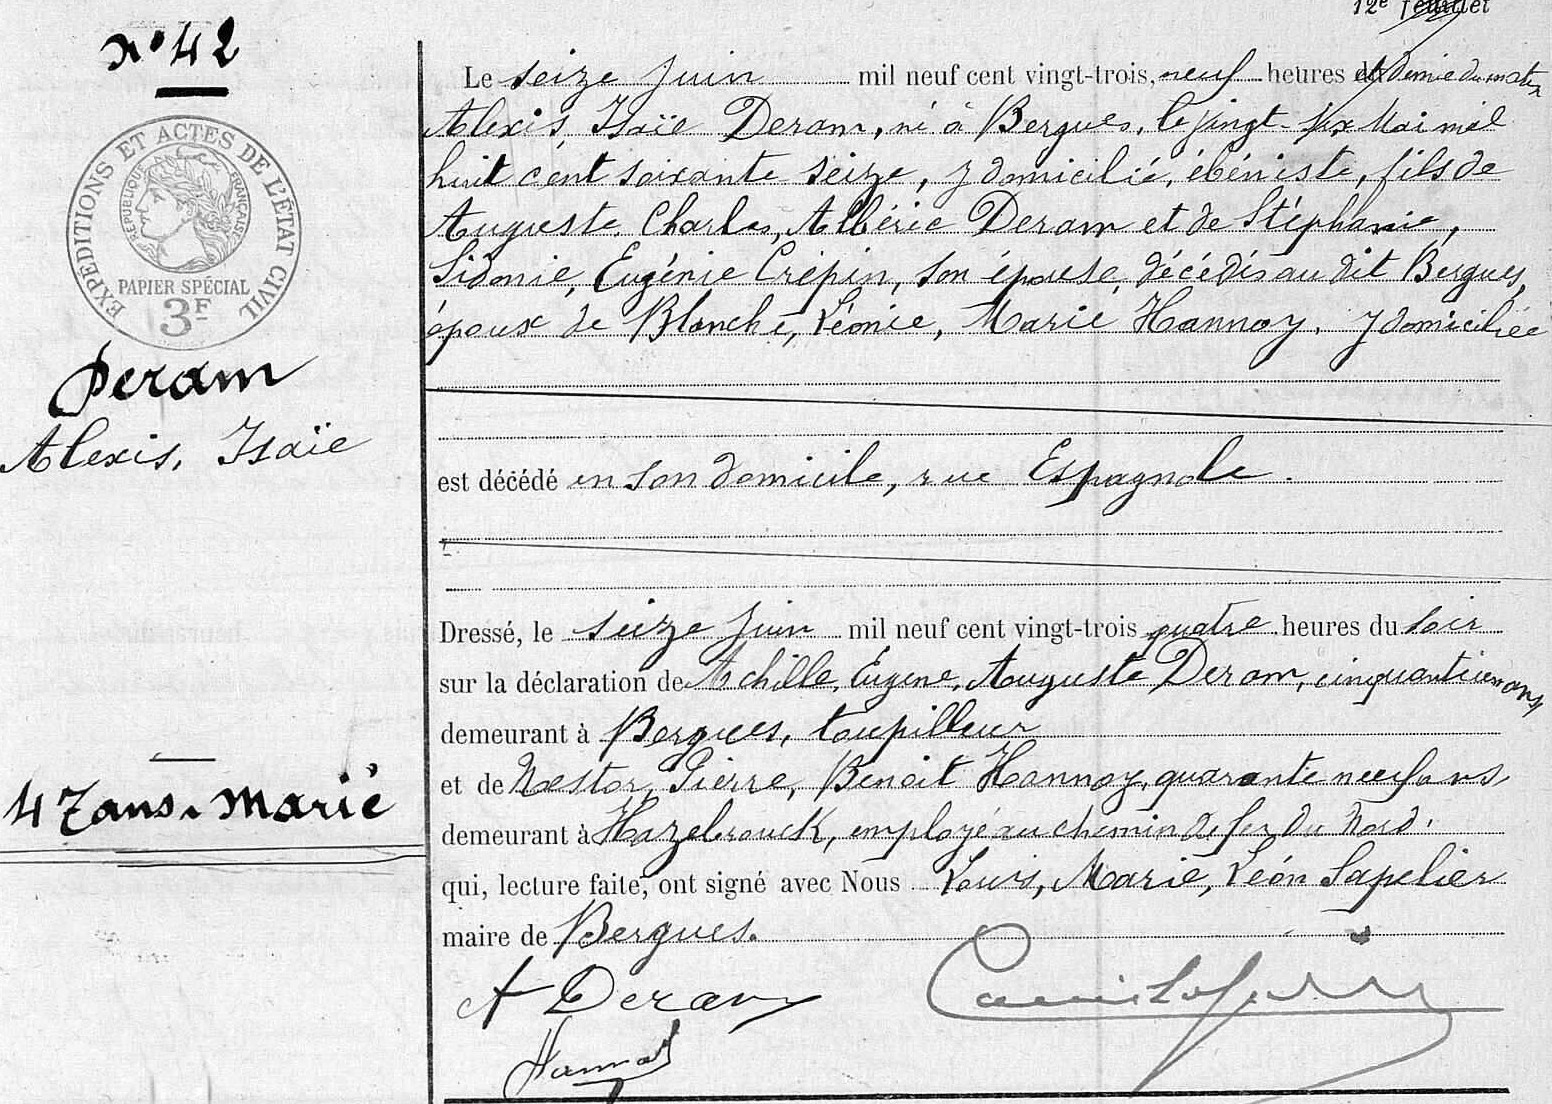 12e feuillet
N° 42
EXPÉDITIONS ET ACTES DE L'ÉTAT CIVIL
RÉPUBLIQUE FRANÇAISE
PAPIER SPÉCIAL
3F
Deram
Alexis, Isaïe
47 ans. Marié
Le seize Juin mil neuf cent vingt-trois, neuf heures et demie du matin
Alexis, Isaïe Deram, né à Bergues, le vingt-six Mai mil
huit cent soixante seize, y domicilié, ébéniste, fils de
Auguste, Charles, Albéric Deram et de Stéphanie,
Sidonie, Eugénie Crépin, son épouse, décédés au dit Bergues,
époux de Blanche, Léonie, Marie Hannoy, y domiciliée
est décédé en son domicile, rue Espagnole.
Dressé, le seize Juin mil neuf cent vingt-trois quatre heures du soir
sur la déclaration de Achille, Eugène, Auguste Deram, ans
demeurant à Bergues, toupilleur
et de Nestor, Pierre, Benoit Hannoy, quarante neuf ans,
demeurant à Hazebrouck, employé au chemin de fer du Nord.
qui, lecture faite, ont signé avec Nous Louis, Marie, Léon Sapelier
maire de Bergues.
A Deram
Hannoy